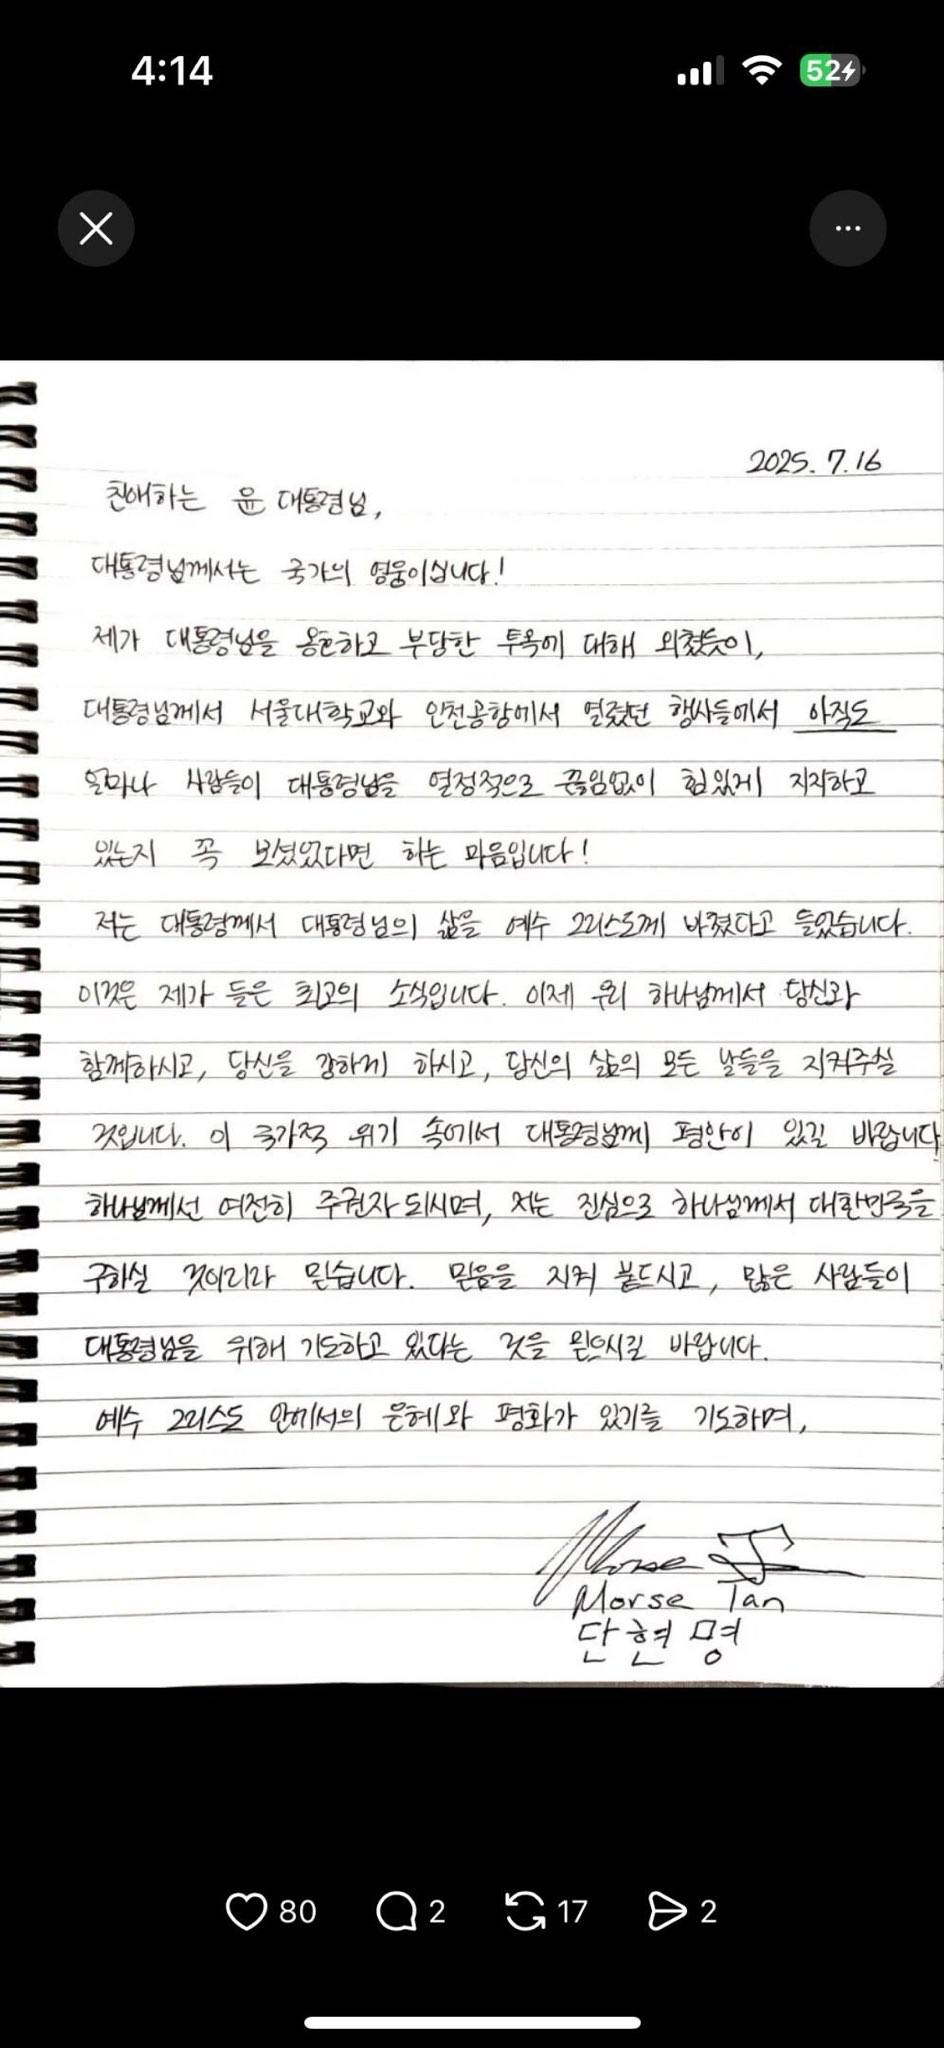 4:14
52
2025. 7. 16
친애하는 윤 대통령님,
대통령님께서는 국가의 영웅이십니다!
제가 대통령님을 옹호하고 부당한 투옥에 대해 외쳤듯이,
대통령님께서 서울대학교와 인천공항에서 열렸던 행사들에서 아직도
얼마나 사람들이 대통령님을 열정적으로 끊임없이 힘있게 지지하고
있는지 꼭 보셨었다면 하는 마음입니다!
저는 대통령께서 대통령님의 삶을 예수 그리스도께 바쳤다고 들었습니다.
이것은 제가 들은 최고의 소식입니다. 이제 우리 하나님께서 당신과
함께하시고, 당신을 강하게 하시고, 당신의 삶의 모든 날들을 지켜주실
것입니다. 이 국가적 위기 속에서 대통령님께 평안이 있길 바랍니다.
하나님께선 여전히 주권자 되시며, 저는 진심으로 하나님께서 대한민국을
구하실 것이리라 믿습니다. 믿음을 지켜 붙드시고, 많은 사람들이
대통령님을 위해 기도하고 있다는 것을 믿으시길 바랍니다.
예수 그리스도 안에서의 은혜와 평화가 있기를 기도하며,
Morse Tan
단현명
80 2 17 2